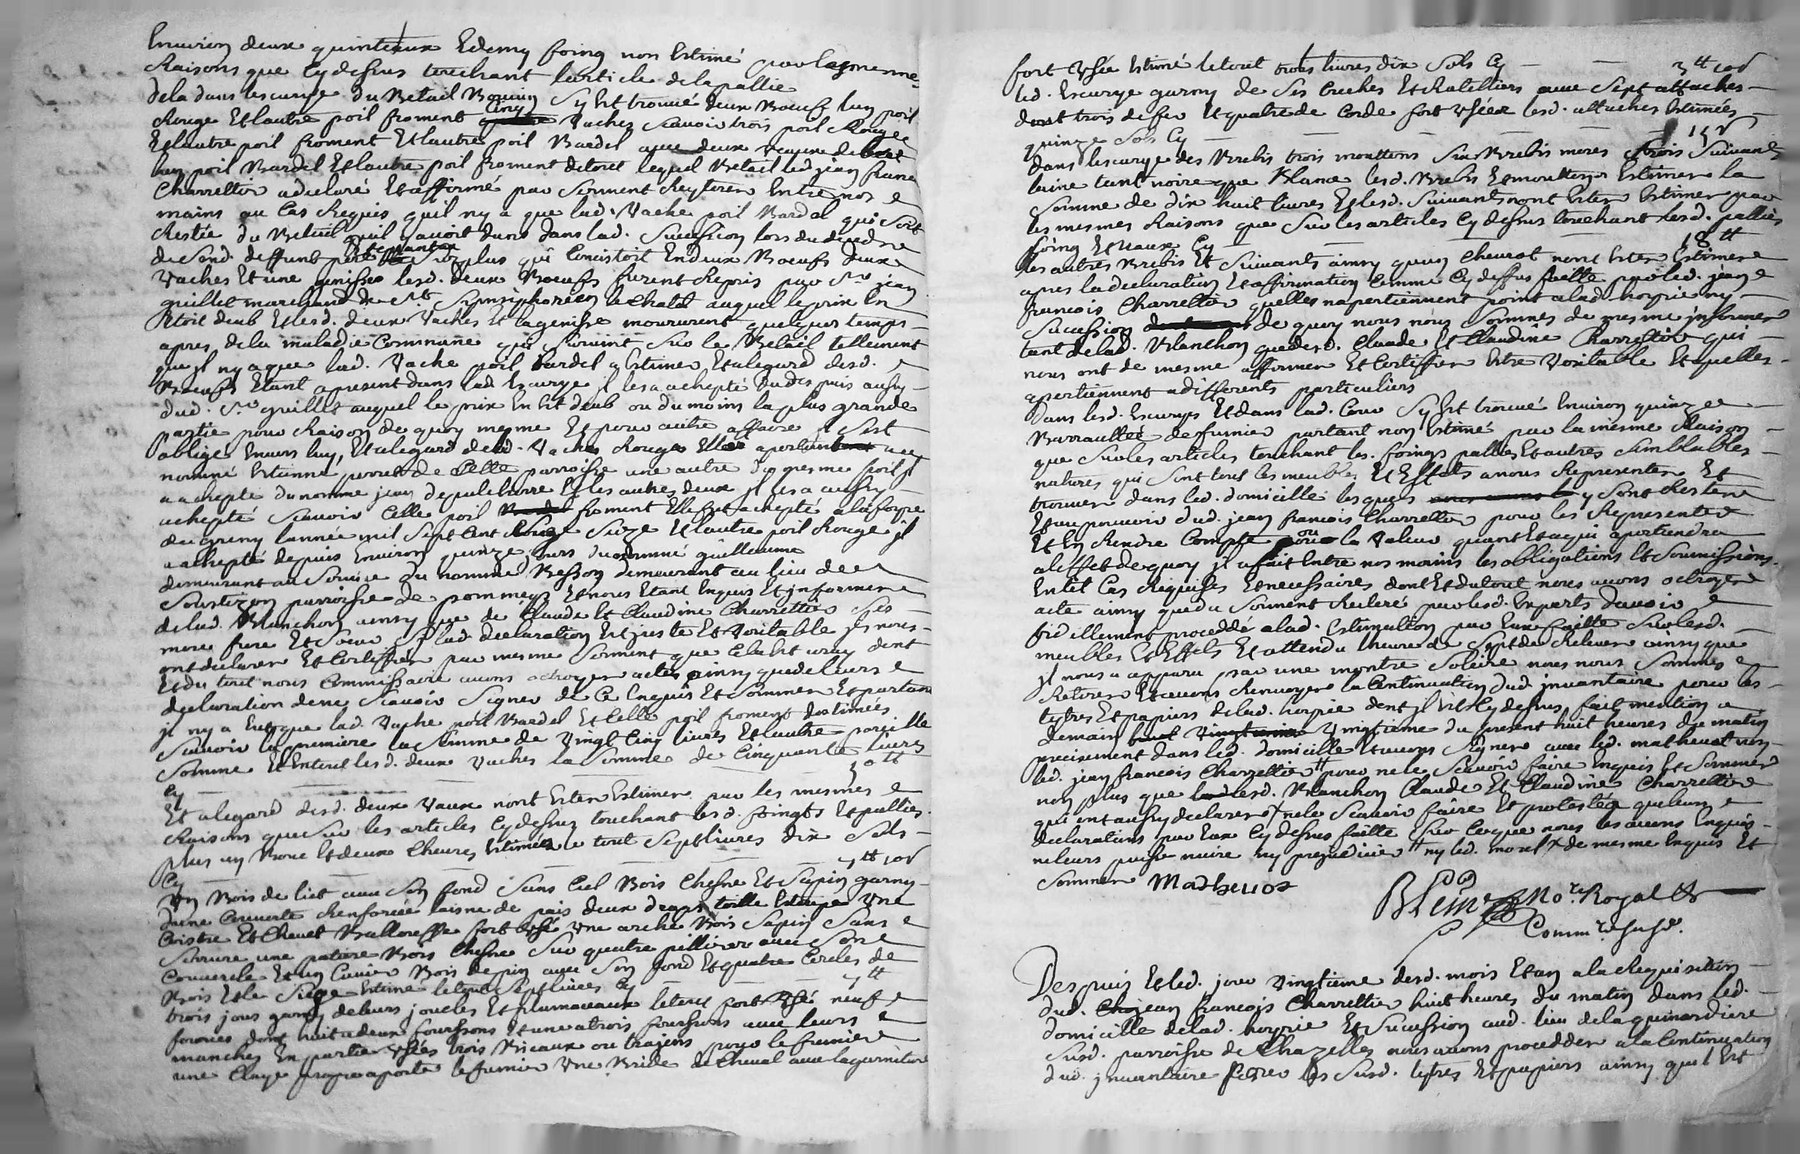 Environ deux quinteaux Edemy foing non Estimé par lasmesme
Raisons que Cydessus touchant larticle delapallie
dela dans lescurye du Betail Bovin Sy Est trouvé deux Boeufs lun poil
Rouge Et lautre poil froment cinq Vaches Scavoir trois poil Rouge
Et lautre poil froment Et lautre poil Bardel avec deux Veaux de
lun poil Bardel Et lautre poil froment detout lequel Betail led jean franc
Charrettier a declaré Et affirmé par Serment Reyteré Entre nos
mains au Cas Requis quil ny a que lad. Vache poil Bardel qui Soit
Restée du Betail quil y avoit dans lad. Succession lors du deceds
de Sond. deffunt pere le Surplus qui Consistoit En deux Boeufs deux
Vaches Et une genisse lesd. deux Boeufs furent Repris par Sr. jean
guillet marchand de St. Simphorien le Chatel auquel le prix En
Etoit deub Et lesd. deux Vaches Et lagenisse moururent quelques temps
apres de la maladie Commune qui Survint Sur le Betail tellement
quil ny a que lad. Vache poil bardel a Estimer Et alegard desd.
Boeufs Etant apresent dans lad Escurye il les a achepté du depuis aussy
dud. Sr. guillet auquel le prix En Est deub ou du moins la plus grande
partie pour Raison de quoy mesme Et pour autre affaire il S'est
obligé Envers luy, Et alegard desd. Vaches Rouge Elles apartiennent
nommé Estienne de Celle parroisse une autre du mesme poil il
a achepté du nommé jean depuilibarre Et les autres deux il les a aussy
achepté Scavoir Celle poil froment Elle fut achepté alafoire
de greny lannée mil Sept Cent Seize Et lautre poil Rouge il
a achepté depuis Environ quinze jours du nommé guillaume
demeurant au Service du nommé Besson demeurant au lieu de
parroisse de pommeys Et nous Etant Enquis Et informer
delad. Blanchon ainsy que de Claude Et Claudine Charrettier Ses
mere frere Et Soeur Si lad. declaration Est juste Et Veritable ils nous
ont declarer Et Certiffier par mesme Serment que Cela Est vray dont
Et du tout nous Commissaire avons octroyer actes ainsy que de leurs
declaration de ne Scavoir Signer de Ce Enquis Et Sommer Et partant
il ny a Eu que lad. Vache poil Bardel Et Celle poil froment destimées
Scavoir la premiere la Somme de Vingt Cinq livres Et lautre pareille
Somme Et Entout lesd. deux Vaches la Somme de Cinquante livres
Cy 50lt
Et alegard desd. deux Vaux nont Ester Estimer par les mesmes
Raisons que Sur les articles Cydessus touchant lesd. foingts Et pallies
plus un Et deux Chevres Estimées le tout Sept livres dix Sols
Cy 7lt 10s
Un Bois de lict avec Son fond Sans Ciel Bois Chesne Et Sapin garny
dune Couverte Renforcée laisne de pais deux draps toille Estoupe Une
Et Chevet Ballouffe fort Usé Une arche Bois Sapin Sans
Serrure une patiere Bois Chesne Sur quatre pilliers avec Son
Couvercle Et un Cuvier Bois de pin avec Son fond Et quatre Cercles de
Bois Et le Siege Estimé letout Sept livres Cy 7lt
trois jous garny de leurs joucles Et plumaceaux letout fort Usé neuf
fourches dont huit a deux fourssons Et une atrois fourssons avec leurs
manches En partie Usés trois Bicaux ou trajens pour le fumier
une Claye propre a porter le fumier Une Bride de Cheval avec lagarniture
fort Usée Estimé letout trois livres dix Sols Cy 3lt 10s
led. Escurye garny de Six Creches Et Ratelliers avec Sept attaches
dont trois de fer Et quatre de Corde fort Usées lesd. attaches Estimées
quinze Sols Cy 15s
Dans lescurye des Brebis trois mouttons Six Brebis meres trois Suivants
laine tant noire que Blanc lesd. Brebis Et mouttons Estimer la
Somme de dix huit livres Et lesd. Suivants nont Ester Estimer par
les mesmes Raisons que Sur les articles Cydessus touchant lesd. pallies
foing Et Vaux Cy 18lt
les autres Brebis Et Suivants ainsy quun Chevrot nont Ester Estimer
apres la declaration Et affirmation Comme Cydessus faitte par led. jean
francois Charrettier quelles napartiennent point alad. hoyrie ny
Succession de quoy nous nous Sommes de mesme informer
tant delad. Blanchon que desd. Claude Et Claudine Charrettier qui
nous ont de mesme affirmer Et Certiffier Estre Veritable Et quelles
apartiennent a differents particuliers
Dans lesd. Escuryes Et dans lad. Cour Sy Est trouvé Environ quinze
Barraultée de fumier partant non Estimé par la mesme Raison
que Sur les articles touchant les foings pallies Et autres Semblables
natures qui Sont tous les meubles Et Effets a nous Representer Et
trouver dans led. domicille lesquels y Sont Rester
Et au pouvoir dud. jean francois Charrettier pour les Representer
Et En Rendre Compte ou la Valeur quant Et aqui apartiendra
aleffet dequoy il a fait Entre nos mains les obligations Et Soumissions
En tel Cas Requises Et necessaires dont Et dutout nous avons octroyer
acte ainsy que du Serment Reiteré par lesd. Experts davoir
fidellement proceddé alad. Estimation par Eux faitte Sur lesd.
meubles Et Effets Et attendu lheure de Sept de Relevée ainsy que
il nous a apparu par une montre Solaire nous nous Sommes
Retirer Et avons Renvoyer la Continuation dud. jnvantaire pour les
tytres Et papiers delad. hoyrie dont il Est Cydessus fait mention a
demain Vingtieme du present huit heures du matin
precisement dans led. domicille Et avons Signer avec led. matheuot non
led. jean francois Charrettier pour ne le Scavoir faire Enquis Et Sommer
non plus que lesd. Blanchon Claude Et Claudine Charrettier
qui ont aussy declarer ne le Scavoir faire Et protester que leurs
declarations par Eux Cydessus faitte Sur Ceque nous les avons Enquis
ne leurs puisse nuire ny prejudicier ny led. morel de mesme Enquis Et
Sommer Matheuot
Nore. Royal
Commre. Susd.
Despuis Et led. jour Vingtieme desd. mois Et an ala Requisition
dud. jean francois Charrettier huit heures du matin dans led.
domicille delad. hoyrie Et Succession aud. lieu de la guinardiere
Susd. parroisse de Chazelles nous avons procedder ala Continuation
dud. jnvantaire pour les Susd. tytres Et papiers ainsy quil Est